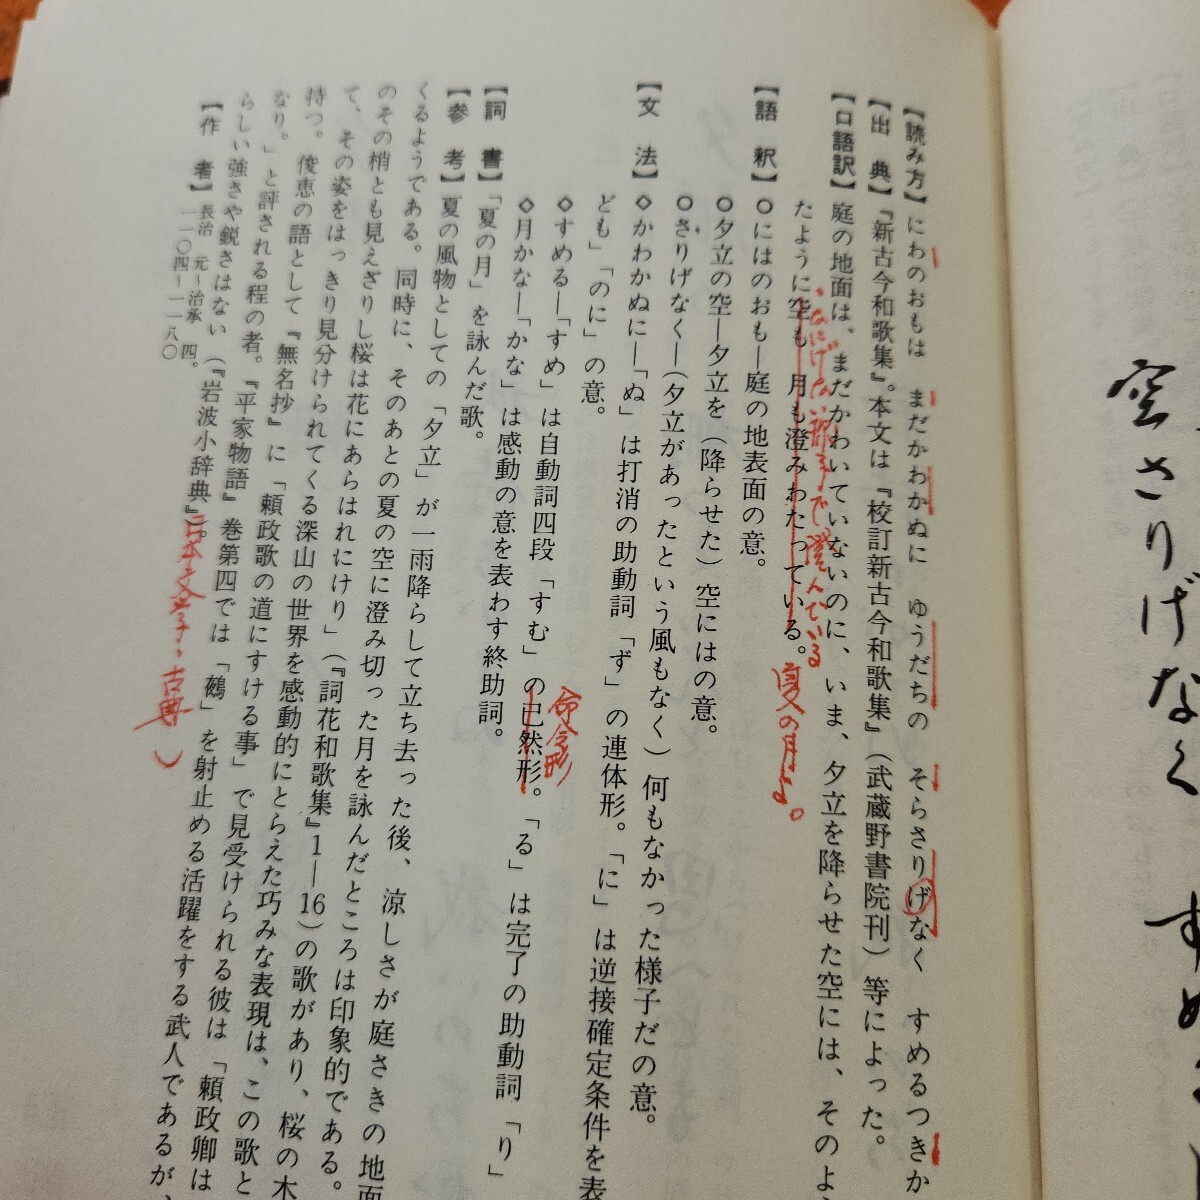 空さりげなく すめる
【読み方】にわのおもは まだかわかぬに ゆうだちの そらさりげなく すめるつきか
【出 典】『新古今和歌集』。本文は『校訂新古今和歌集』（武蔵野書院刊）等によった。
【口語訳】庭の地面は、まだかわいていないのに、いま、夕立を降らせた空には、そのよう
・なにげない様子で澄んでいる
たように空も、月も澄みわたっている。
夏の月よ。
【語 釈】○にはのおも―庭の地表面の意。
○夕立の空―夕立を（降らせた）空にはの意。
○さりげなく―（夕立があったという風もなく）何もなかった様子だの意。
【文 法】◇かわかぬに―「ぬ」は打消の助動詞「ず」の連体形。「に」は逆接確定条件を表
ども」「のに」の意。
命令形
◇すめる―「すめ」は自動詞四段「すむ」の已然形。「る」は完了の助動詞「り」
◇月かな―「かな」は感動の意を表わす終助詞。
【詞 書】「夏の月」を詠んだ歌。
【参 考】夏の風物としての「夕立」が一雨降らして立ち去った後、涼しさが庭さきの地面
くるようである。同時に、そのあとの夏の空に澄み切った月を詠んだところは印象的である。
のその梢とも見えざりし桜は花にあらはれにけり」（『詞花和歌集』1―16）の歌があり、桜の木
て、その姿をはっきり見分けられてくる深山の世界を感動的にとらえた巧みな表現は、この歌と
持つ。俊恵の語として『無名抄』に「頼政歌の道にすける事」で見受けられる彼は「頼政卿は
なり。」と評される程の者。『平家物語』巻第四では「鵺」を射止める活躍をする武人であるが、
らしい強さや鋭さはない（『岩波小辞典』）。
日本文学・古典）
【作 者】長治 元～治承 四。
一一〇四～一一八〇